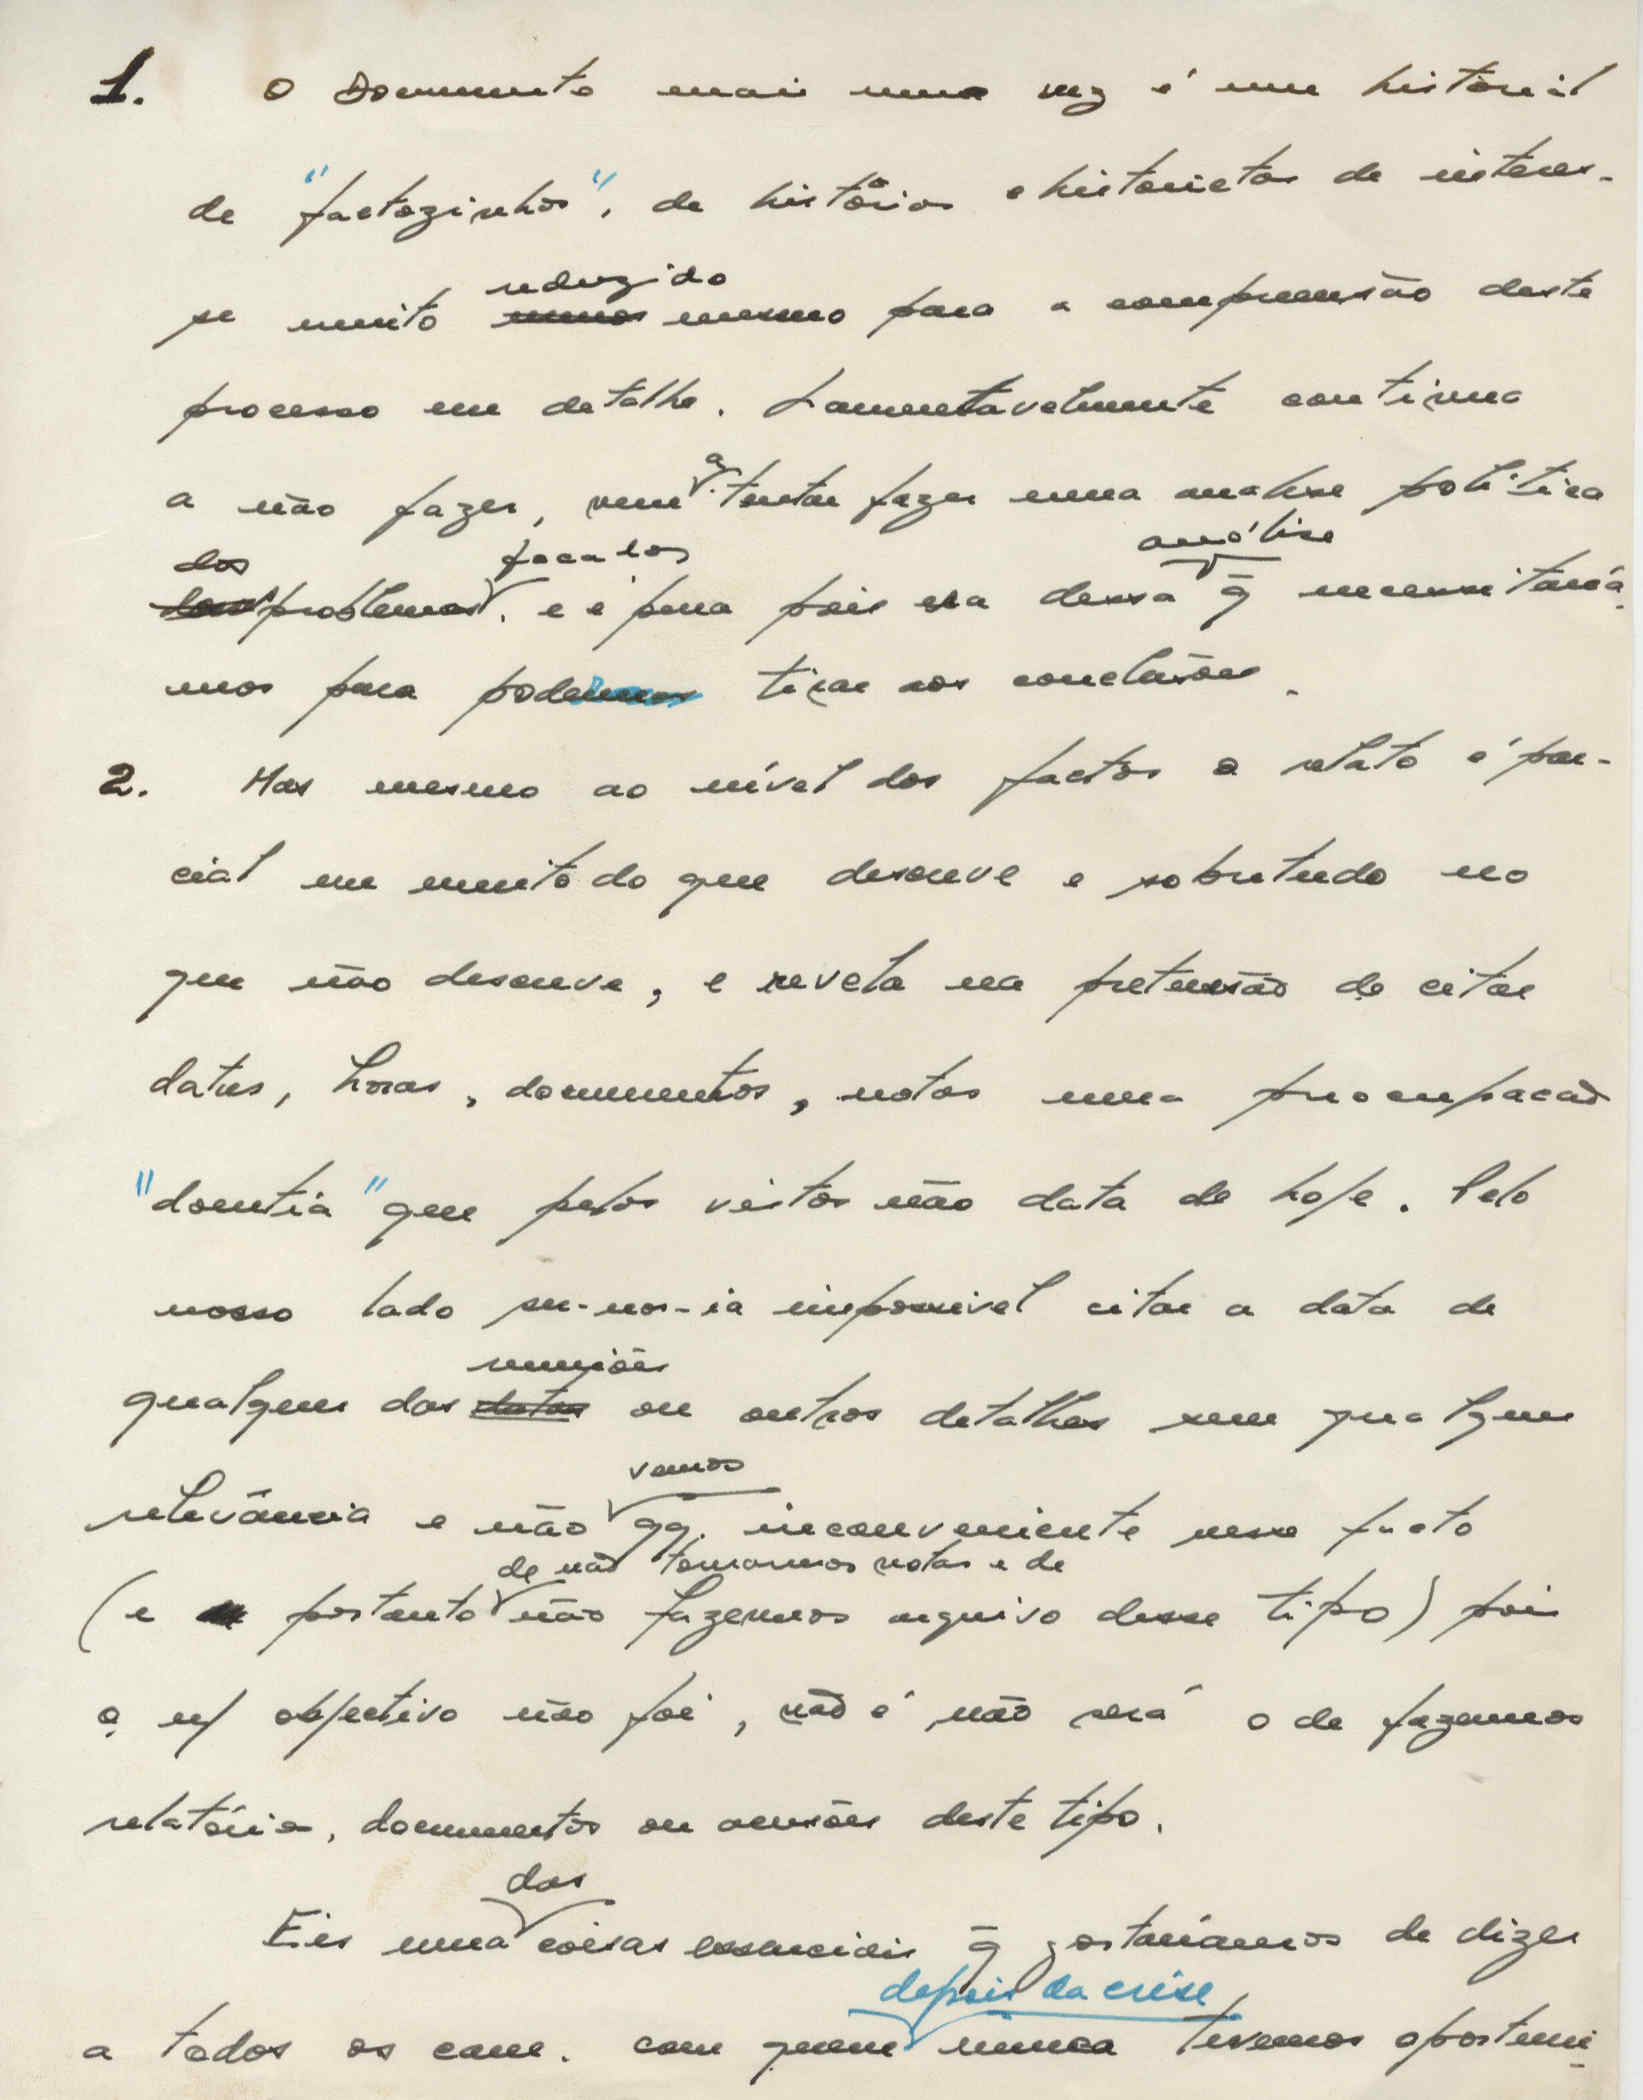 1. O Documento mais uma vez é um historial
de "factozinhos", de histórias e historietas de interes-
se muito reduzido mesmo para a compreensão deste
processo em detalhe. Lamentavelmente continua
a não fazer, nem a tentar fazer uma analise politica
dos problemas focados, e é pena pois era dessa análise q̄ necessitaría-
mos para poder tirar as conclusões.
2. Mas mesmo ao nível dos factos o relato é par-
cial em muito do que descreve e sobretudo no
que não descreve, e revela na pretensão de citar
datas, horas, documentos, notas uma preocupação
"doentia" que pelos vistos não data de hoje. Pelo
nosso lado ser-nos-ia impossivel citar a data de
qualquer das reuniões ou outros detalhes sem qualquer
relevância e não vemos qq. inconveniente nesse facto
(e portanto de não tomarmos notas e de não fazermos arquivo desse tipo) pois
o n/ objectivo não foi, não é não será o de fazermos
relatórios, documentos ou acusões deste tipo.
Eis uma das coisas essenciais q̄ gostaríamos de dizer
a todos os cam. com quem depois da crise nunca tivemos oportuni-